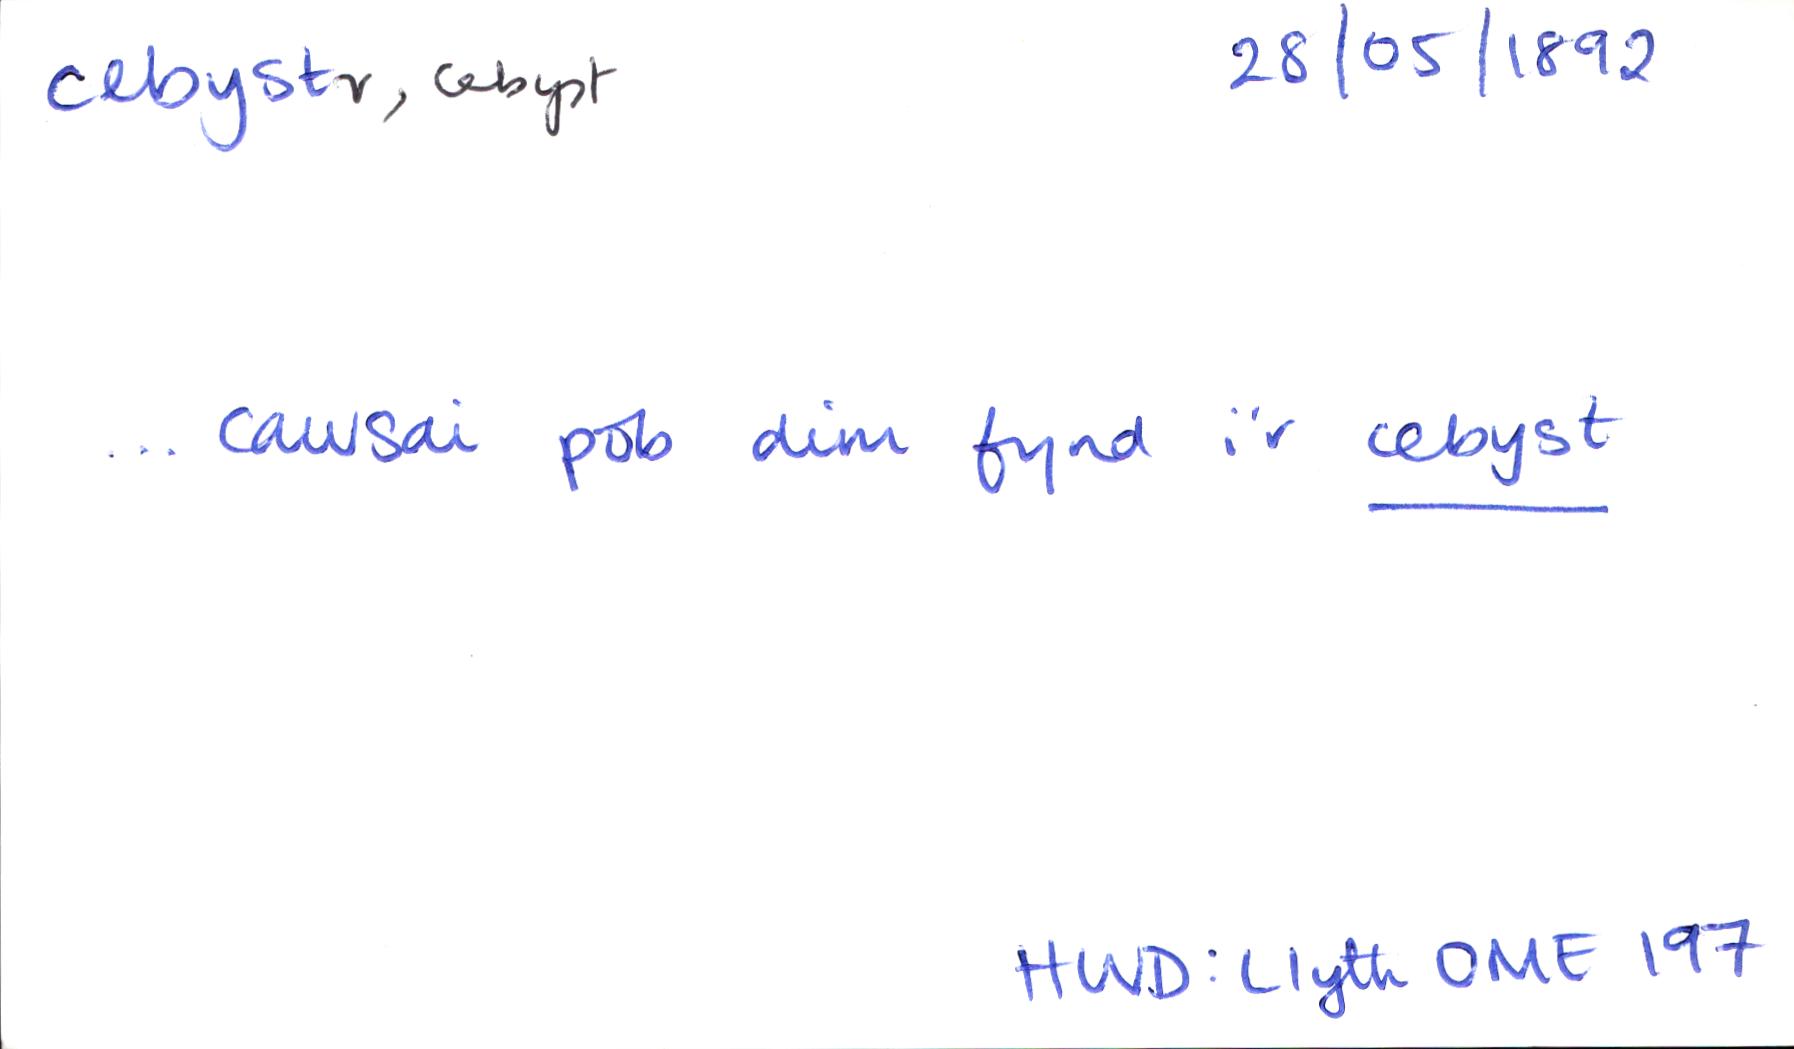 cebystr, cebyst 28/05/1892
... cawsai pob dim fynd i'r cebyst
HWD: Llyth OME 197